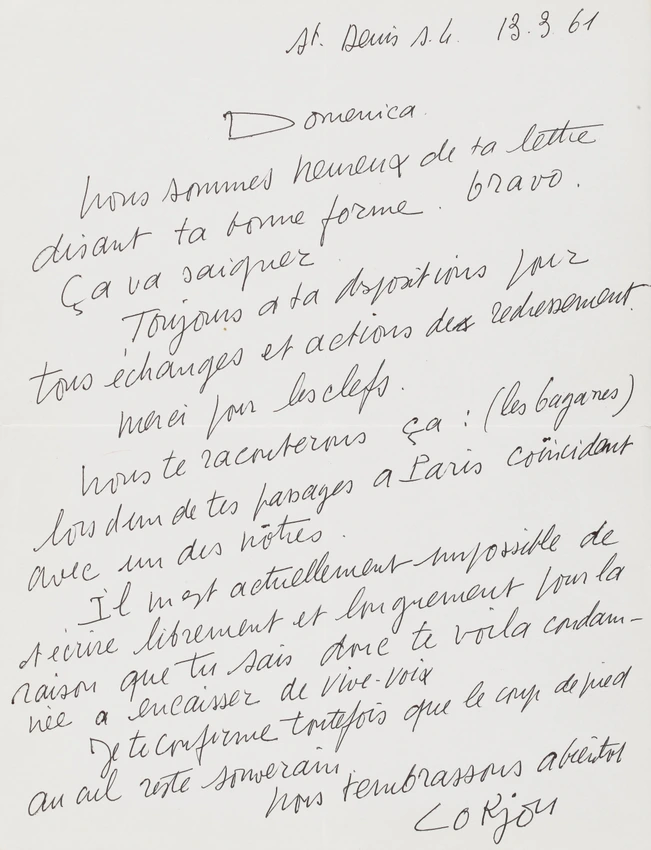 St. Denis s.L. 13.3.61
Domenica.
Nous sommes heureux de ta lettre
disant ta bonne forme. bravo.
Ça va saigner
Toujours a ta dispositions pour
tous échanges et actions de redressement.
merci pour les clefs.
Nous te raconterons ça : (les bagarres)
lors d'un de tes passages a Paris coïncidant
avec un des nôtres.
Il m'est actuellement impossible de
t'écrire librement et longuement pour la
raison que tu sais donc te voila condam-
née a encaisser de vive-voix
Je te confirme toutefois que le coup de pied
au cul reste souverain.
Nous t'embrassons abientot
LORJOU